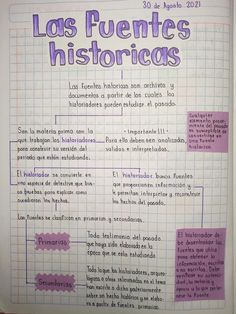 30 de Agosto 2021
Las fuentes
historicas
Las fuentes historicas son archivos y
documentos a partir de los cuales los
historiadores pueden estudiar el pasado.
Cualquier
elemento procedente
del pasado
es susceptible de
convertirse en
una fuente
historica
Son la materia prima con la
que trabajan los historiadores
para construir su versión del
periodo que están estudiando.
· Importante!!! ·
Para ello deben ser analizadas,
validas e interpretadas.
El historiador se convierte en
una especie de detective que bus-
ca pruebas para explicar como
sucedieron los hechos.
El historiador busca fuentes
que proporcionen información y
le permitan interpretar y reconstruir
los hechos del pasado.
Las fuentes se clasifican en primarias y secundarias.
Primarias
Todo testimonio del pasado
que haya sido elaborado en la
época que se esta estudiando
Secundarias
Todo lo que los historiadores, arqueo-
logos u otros interesados en el tema
han escrito o dicho posteriormente
sobre un hecho histórico y se elabo-
ra a partir de fuentes primarias.
El historiador
de las
fuentes que utiliza
para obtener la
información, escritas
o no escritas. Debe
verificar su autenti-
cidad, su autoria y
la fuente.